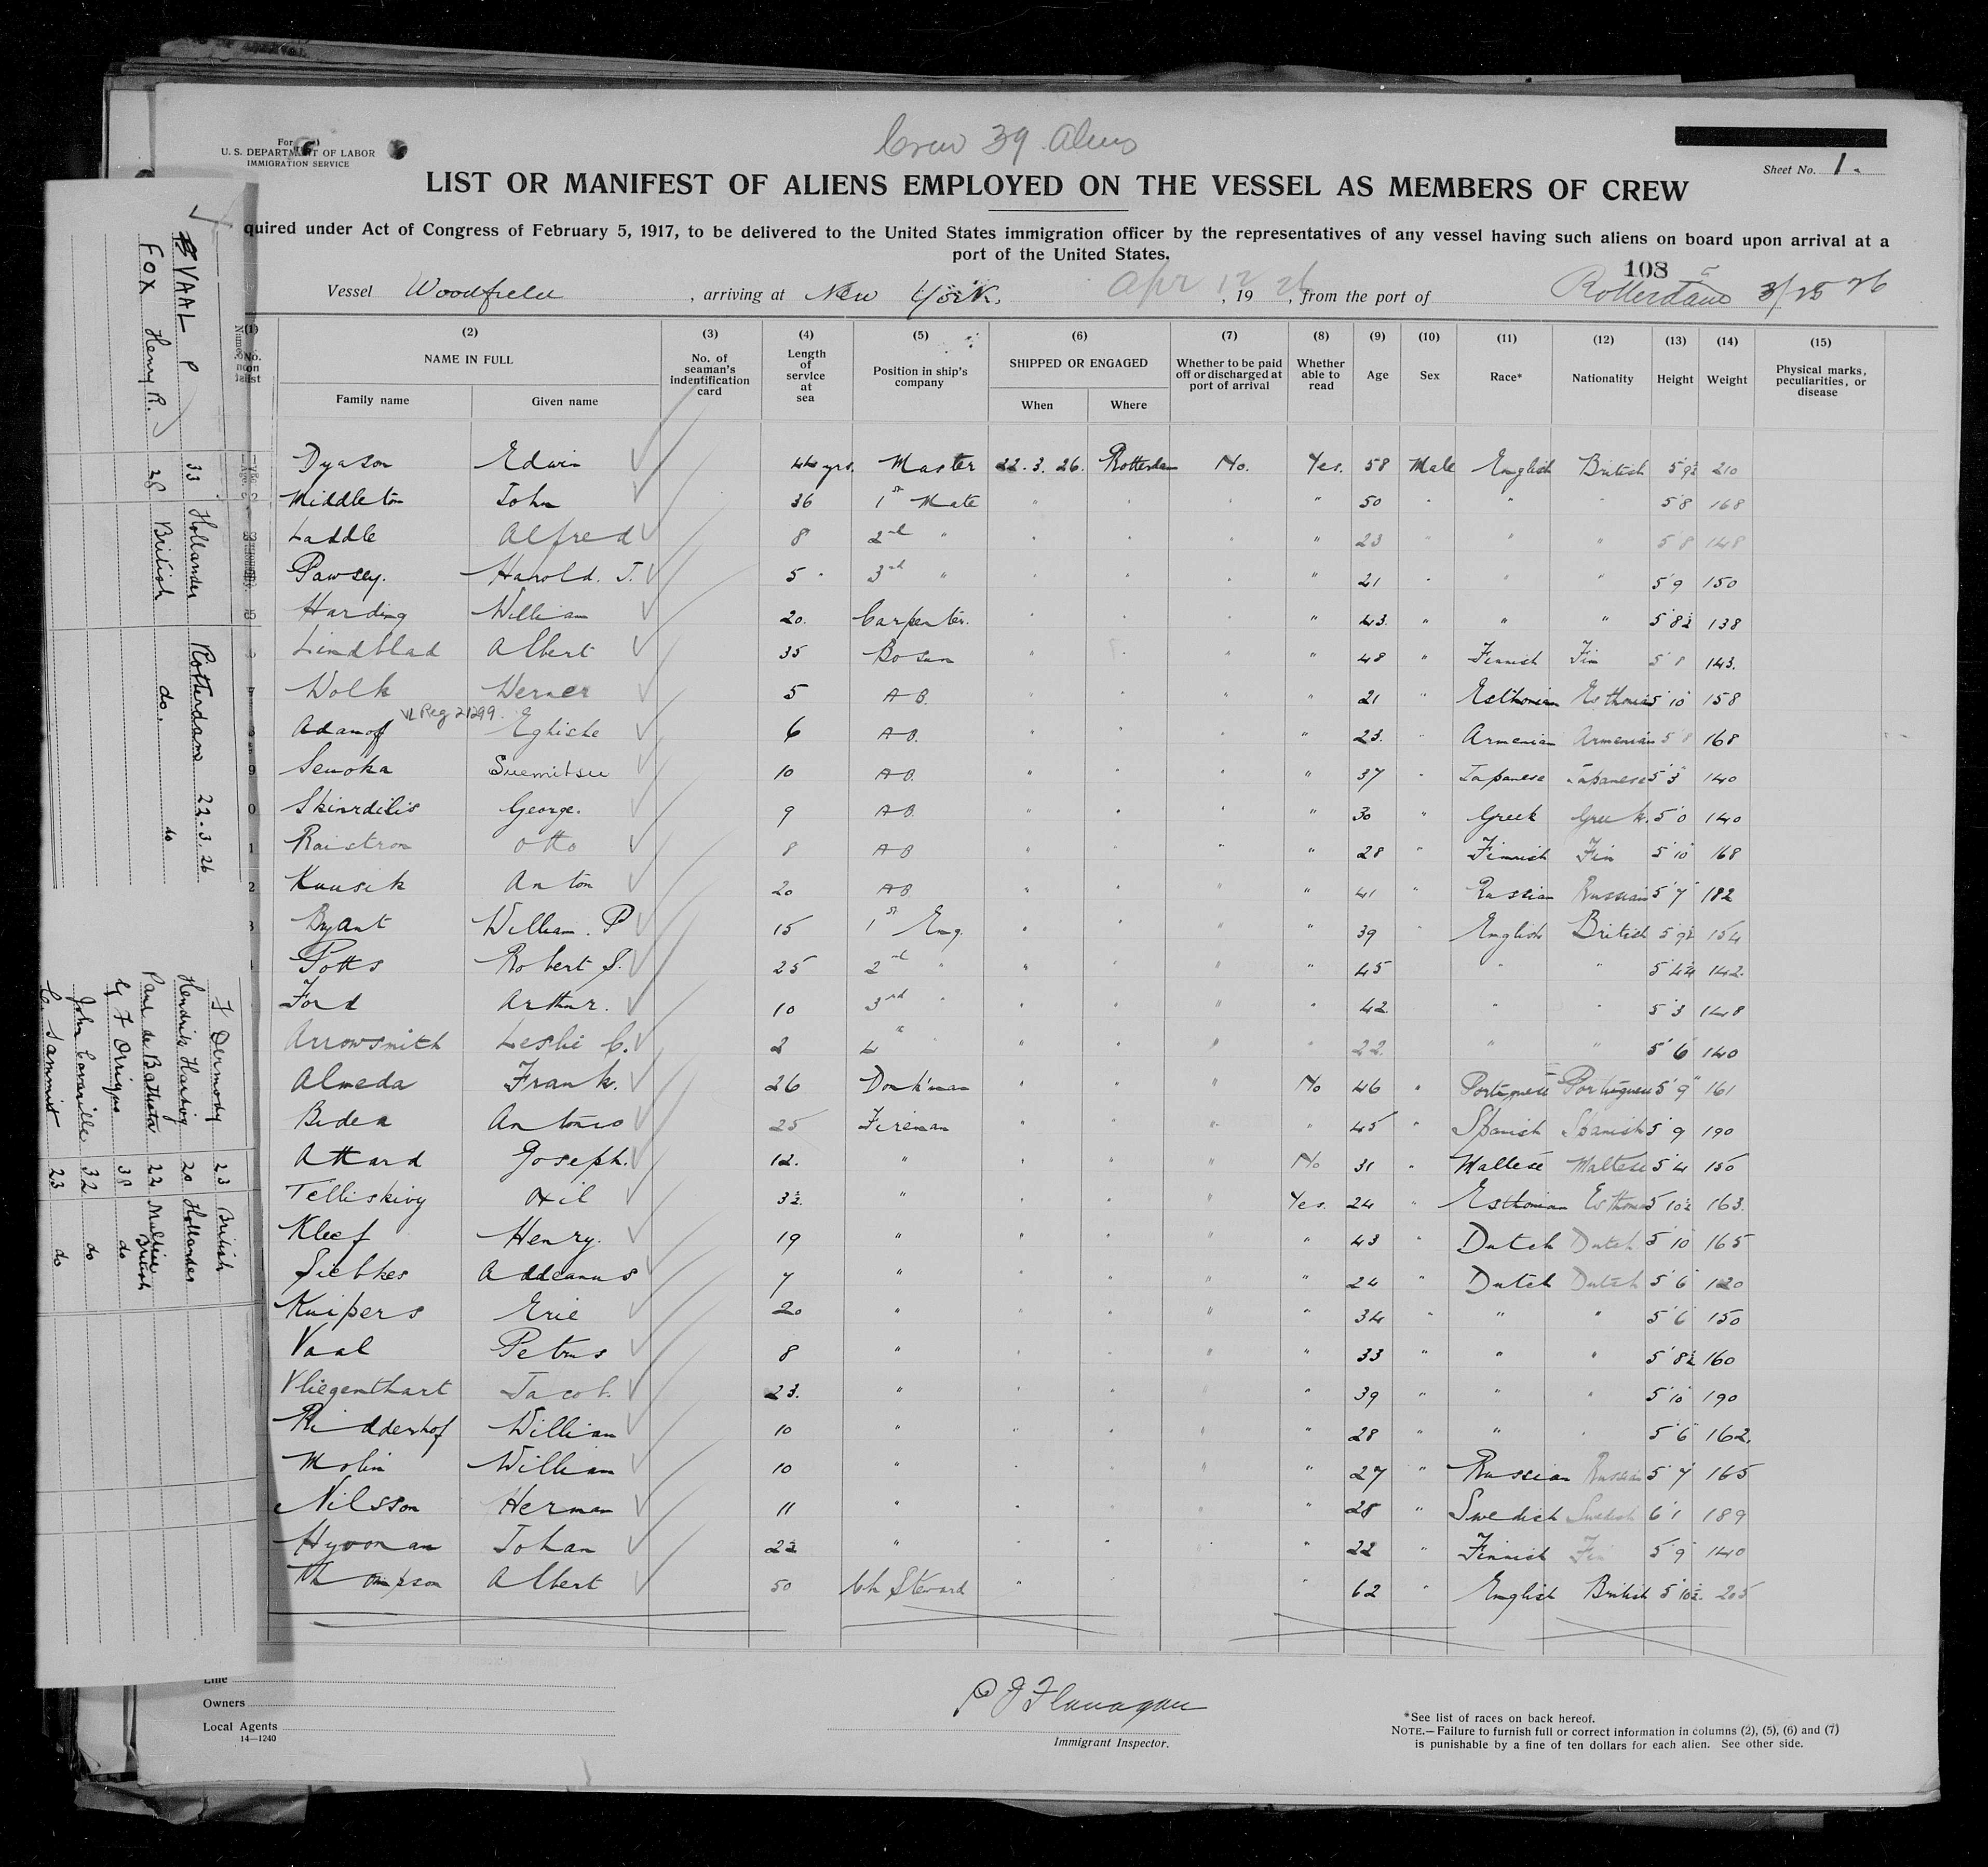 Crew 39 Aliens
U. S. DEPARTMENT OF LABOR
IMMIGRATION SERVICE
Sheet No. 1
LIST OR MANIFEST OF ALIENS EMPLOYED ON THE VESSEL AS MEMBERS OF CREW
quired under Act of Congress of February 5, 1917, to be delivered to the United States immigration officer by the representatives of any vessel having such aliens on board upon arrival at a
port of the United States.
108
Vessel Woodfield, arriving at New York, Apr 12, 1926, from the port of Rotterdam 3/25 26
(1) (2) (3) (4) (5) (6) (7) (8) (9) (10) (11) (12) (13) (14) (15)
No. on list
NAME IN FULL
Family name
Given name
No. of seaman's indentification card
Length of service at sea
Position in ship's company
SHIPPED OR ENGAGED
When
Where
Whether to be paid off or discharged at port of arrival
Whether able to read
Age
Sex
Race*
Nationality
Height
Weight
Physical marks, peculiarities, or disease
Dyason Edwin 44 yrs. Master 22.3.26. Rotterdam No. Yes. 58 Male English British 5 9½ 210
Middleton John 36 1st Mate " " " " 50 " " " 5 8 168
Laddle Alfred 8 2nd " " " " " 23 " " " 5 8 148
Pawsey. Harold. J. 5 3rd " " " " " 21 " " " 5 9 150
Harding William 20. Carpenter. " " " " 43. " " " 5 8½ 138
Lindblad Albert 35 Bosun " " " " 48 " Finnish Fin 5 8 143.
Wolk Werner 5 AB. " " " " 21 " Esthonian Esthonian 5 10 158
VL Reg 21299.
Adamof Eghiche 6 AB. " " " " 23. " Armenian Armenian 5 8 168
Senoka Suemitsu 10 AB. " " " " 37 " Japanese Japanese 5 3 140
Skinrdilis George. 9 AB. " " " " 30 " Greek Greek. 5 0 140
Raistrom Otto 8 AB " " " " 28 " Finnish Fin 5 10 168
Kuusik Anton 20 AB. " " " " 41 " Russian Russian 5 7 182
Bryant William. P 15 1st Eng. " " " " 39 " English British 5 9½ 154
Potts Robert S. 25 2nd " " " " " 45 " " 5 4¾ 142
Ford Arthur. 10 3rd " " " " " 42 " " 5 3 148
Arrowsmith Leslie C. 2 4 " " " " " 22. " " 5 6 140
Almeda Frank. 26 Donk'man " " " No 46 " Portuguese Portuguese 5 9 161
Bidea Antonio 25 Fireman " " " " 45 " Spanish Spanish 5 9 190
Attard Goseph. 12. " " " " No 31 " Maltese Maltese 5 4 150
Telliskivy Oxil 3½ " " " " Yes. 24 " Esthonian Esthonian 5 10½ 163.
Kleef Henry. 19 " " " " " 43 " Dutch Dutch 5 10 165
Siebkes Addeanus 7 " " " " " 24 " Dutch Dutch 5 6 120
Kuipers Eric 20 " " " " " 34 " " " 5 6 150
Vaal Petrus 8 " " " " " 33 " " " 5 8½ 160
Vliegenthart Jacob. 23. " " " " " 39 " " " 5 10 190
Ridderhof William 10 " " " " " 28 " " " 5 6 162.
Molin William 10 " " " " " 27 " Russian Russian 5 7 165
Nilsson Herman 11 " " " " " 28 " Swedish Swedish 6 1 189
Hyvonan Johan 2½ " " " " " 22 " Finnish Fin 5 9 140
Thompson Albert 50 Ch Steward " " " 62 " English British 5 10½ 205
Line
Owners
Local Agents
14—1240
P J Flanagan
Immigrant Inspector.
*See list of races on back hereof.
NOTE.—Failure to furnish full or correct information in columns (2), (5), (6) and (7)
is punishable by a fine of ten dollars for each alien. See other side.
VAAL P 33 Hollander Rotterdam 22.3.26
FOX Henry R. 28 British do. do
F Dermody 23 British
Hendrik Hartog 20 Hollander
Paul de Battista 22 Maltese British
G F Origio 38 do
John Cavaville 32 do
C. Sammut 23 do